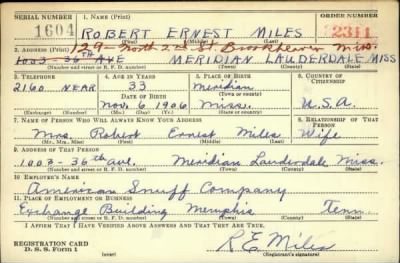 SERIAL NUMBER 1. NAME (Print) ORDER NUMBER
1604 ROBERT ERNEST MILES 2311
(First) (Middle) (Last)
2. ADDRESS (Print) 129- North 2nd St. Brookhaven Miss.
1003-36TH AVE MERIDIAN LAUDERDALE MISS
(Number and street or R. F. D. number) (Town) (County) (State)
3. TELEPHONE 4. AGE IN YEARS 5. PLACE OF BIRTH 6. COUNTRY OF CITIZENSHIP
2160 NEAR 33 Meridian
DATE OF BIRTH (Town or county)
Nov. 6 1906 Miss. U.S.A.
(Exchange) (Number) (Mo.) (Day) (Yr.) (State or country)
7. NAME OF PERSON WHO WILL ALWAYS KNOW YOUR ADDRESS 8. RELATIONSHIP OF THAT PERSON
Mrs. Robert Ernest Miles Wife
(Mr., Mrs., Miss) (First) (Middle) (Last)
9. ADDRESS OF THAT PERSON
1003-36th ave. Meridian Lauderdale Miss.
(Number and street or R. F. D. number) (Town) (County) (State)
10. EMPLOYER'S NAME
American Snuff Company
11. PLACE OF EMPLOYMENT OR BUSINESS
Exchange Building Memphis Tenn.
(Number and street or R. F. D. number) (Town) (County) (State)
I AFFIRM THAT I HAVE VERIFIED ABOVE ANSWERS AND THAT THEY ARE TRUE.
REGISTRATION CARD
D. S. S. Form 1
R E Miles
(Registrant's signature)